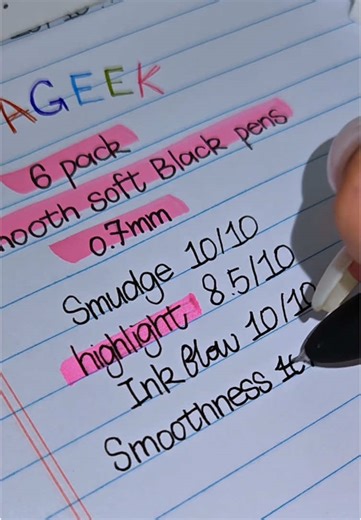 AGEEK
6 pack
mooth soft Black pens
0.7mm
Smudge 10/10
highlight 8.5/10
Ink flow 10/10
Smoothness